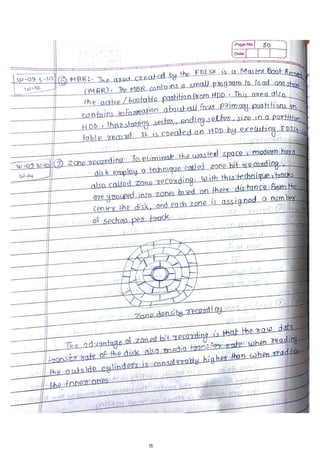 Page No. 50
Date
W-09 S-10
W-12
⑥ MBR:- The area created by the FDISK is a Master Boot Record
(MBR). The MBR contains a small program to load and start
the active / bootable partition from HDD. This area also
contains information about all four primary partitions on
HDD, their starting sector, ending sector, size in a partition
table record. It is created on HDD by executing FDISK.
W-09 W-10
W-14
⑦ Zone recording: To eliminate the wasted space, modern hard
disk employ a technique called zone bit recording,
also called zone recording. With this technique, tracks
are grouped into zones based on their distance from the
center the disk, and each zone is assigned a number
of sectors per track.
Zone density recording
The advantage of zoned bit recording is that the raw data
transfer rate of the disk also media transfer rate when reading
the outside cylinders is considerably higher than when reading
the inner ones.
15